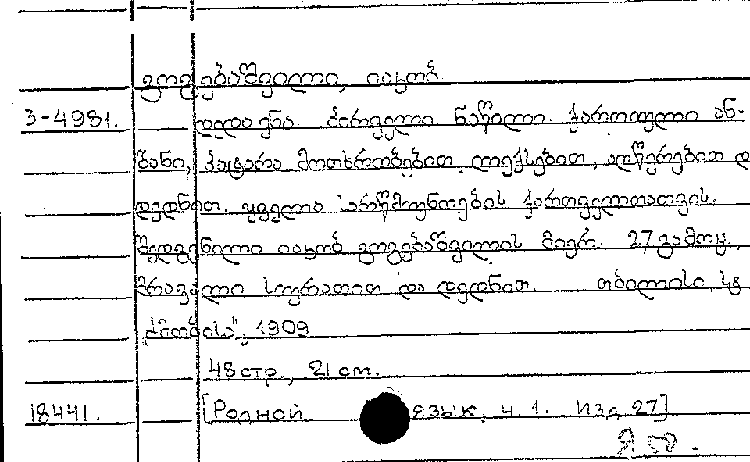 გოგებაშვილი, იაკობ.
3-4981. დედა ენა. პირველი ნაწილი. ქართული ან-
ბანი, პატარა მოთხრობებით, ლექსებით, აღწერებით დ
დედნით. ყველა სარწმუნოების ქართველთათვის.
შედგენილი იაკობ გოგებაშვილის მიერ. 27 გამოც.
მრავალი სურათით და დედნით. თბილისი, სტ.
"შრომისა", 1909
48 стр., 21 cm.
18441. [Родной язык. ч. 1. Изд. 27]